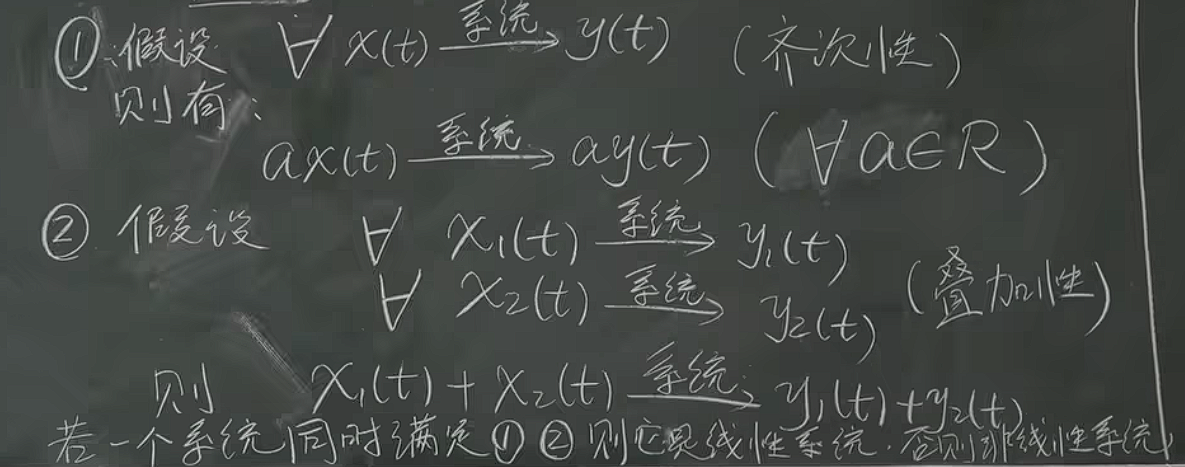 ① 假设 ∀ x(t) 系统→ y(t) (齐次性)
则有:
ax(t) 系统→ ay(t) (∀a∈R)
② 假设 ∀ x₁(t) 系统→ y₁(t)
∀ x₂(t) 系统→ y₂(t) (叠加性)
则 x₁(t)+x₂(t) 系统→ y₁(t)+y₂(t)
若一个系统同时满足①②则它是线性系统.否则非线性系统